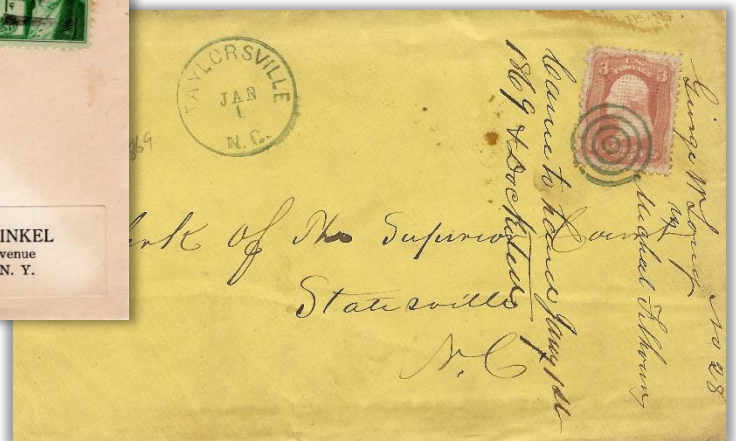 INKEL
venue
N. Y.
TAYLORSVILLE
JAN
1
N.C.
869
3 U.S. POSTAGE 3
rk of the Superior Court
Statesville
N.C
Came to hand Jany 1st
1869 & Docketed
George W Long No 28
vs